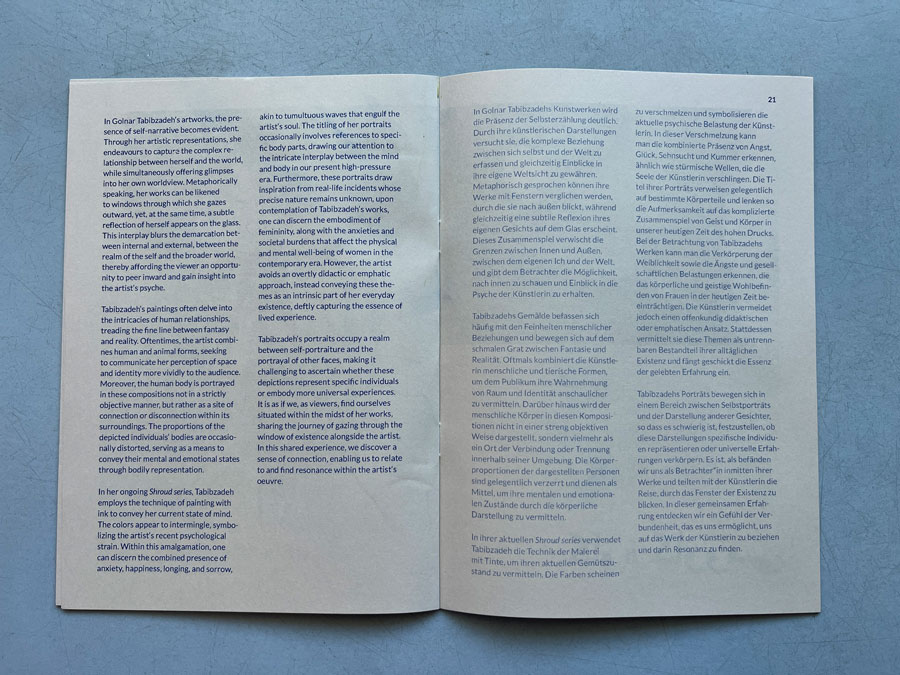 In Golnar Tabibzadeh's artworks, the pre-
sence of self-narrative becomes evident.
Through her artistic representations, she
endeavours to capture the complex re-
lationship between herself and the world,
while simultaneously offering glimpses
into her own worldview. Metaphorically
speaking, her works can be likened
to windows through which she gazes
outward, yet, at the same time, a subtle
reflection of herself appears on the glass.
This interplay blurs the demarcation bet-
ween internal and external, between the
realm of the self and the broader world,
thereby affording the viewer an opportu-
nity to peer inward and gain insight into
the artist's psyche.
Tabibzadeh's paintings often delve into
the intricacies of human relationships,
treading the fine line between fantasy
and reality. Oftentimes, the artist combi-
nes human and animal forms, seeking
to communicate her perception of space
and identity more vividly to the audience.
Moreover, the human body is portrayed
in these compositions not in a strictly
objective manner, but rather as a site of
connection or disconnection within its
surroundings. The proportions of the
depicted individuals' bodies are occasio-
nally distorted, serving as a means to
convey their mental and emotional states
through bodily representation.
In her ongoing Shroud series, Tabibzadeh
employs the technique of painting with
ink to convey her current state of mind.
The colors appear to intermingle, symbo-
lizing the artist's recent psychological
strain. Within this amalgamation, one
can discern the combined presence of
anxiety, happiness, longing, and sorrow,
akin to tumultuous waves that engulf the
artist's soul. The titling of her portraits
occasionally involves references to speci-
fic body parts, drawing our attention to
the intricate interplay between the mind
and body in our present high-pressure
era. Furthermore, these portraits draw
inspiration from real-life incidents whose
precise nature remains unknown, upon
contemplation of Tabibzadeh's works,
one can discern the embodiment of
femininity, along with the anxieties and
societal burdens that affect the physical
and mental well-being of women in the
contemporary era. However, the artist
avoids an overtly didactic or emphatic
approach, instead conveying these the-
mes as an intrinsic part of her everyday
existence, deftly capturing the essence of
lived experience.
Tabibzadeh's portraits occupy a realm
between self-portraiture and the
portrayal of other faces, making it
challenging to ascertain whether these
depictions represent specific individuals
or embody more universal experiences.
It is as if we, as viewers, find ourselves
situated within the midst of her works,
sharing the journey of gazing through the
window of existence alongside the artist.
In this shared experience, we discover a
sense of connection, enabling us to relate
to and find resonance within the artist's
oeuvre.
21
In Golnar Tabibzadehs Kunstwerken wird
die Präsenz der Selbsterzählung deutlich.
Durch ihre künstlerischen Darstellungen
versucht sie, die komplexe Beziehung
zwischen sich selbst und der Welt zu
erfassen und gleichzeitig Einblicke in
ihre eigene Weltsicht zu gewähren.
Metaphorisch gesprochen können ihre
Werke mit Fenstern verglichen werden,
durch die sie nach außen blickt, während
gleichzeitig eine subtile Reflexion ihres
eigenen Gesichts auf dem Glas erscheint.
Dieses Zusammenspiel verwischt die
Grenzen zwischen Innen und Außen,
zwischen dem eigenen Ich und der Welt,
und gibt dem Betrachter die Möglichkeit,
nach innen zu schauen und Einblick in die
Psyche der Künstlerin zu erhalten.
Tabibzadehs Gemälde befassen sich
häufig mit den Feinheiten menschlicher
Beziehungen und bewegen sich auf dem
schmalen Grat zwischen Fantasie und
Realität. Oftmals kombiniert die Künstle-
rin menschliche und tierische Formen,
um dem Publikum ihre Wahrnehmung
von Raum und Identität anschaulicher
zu vermitteln. Darüber hinaus wird der
menschliche Körper in diesen Komposi-
tionen nicht in einer streng objektiven
Weise dargestellt, sondern vielmehr als
ein Ort der Verbindung oder Trennung
innerhalb seiner Umgebung. Die Körper-
proportionen der dargestellten Personen
sind gelegentlich verzerrt und dienen als
Mittel, um ihre mentalen und emotiona-
len Zustände durch die körperliche
Darstellung zu vermitteln.
In ihrer aktuellen Shroud series verwendet
Tabibzadeh die Technik der Malerei
mit Tinte, um ihren aktuellen Gemütszu-
stand zu vermitteln. Die Farben scheinen
zu verschmelzen und symbolisieren die
aktuelle psychische Belastung der Künst-
lerin. In dieser Verschmelzung kann
man die kombinierte Präsenz von Angst,
Glück, Sehnsucht und Kummer erkennen,
ähnlich wie stürmische Wellen, die die
Seele der Künstlerin verschlingen. Die Ti-
tel ihrer Porträts verweisen gelegentlich
auf bestimmte Körperteile und lenken so
die Aufmerksamkeit auf das komplizierte
Zusammenspiel von Geist und Körper in
unserer heutigen Zeit des hohen Drucks.
Bei der Betrachtung von Tabibzadehs
Werken kann man die Verkörperung der
Weiblichkeit sowie die Ängste und gesell-
schaftlichen Belastungen erkennen, die
das körperliche und geistige Wohlbefin-
den von Frauen in der heutigen Zeit be-
einträchtigen. Die Künstlerin vermeidet
jedoch einen offenkundig didaktischen
oder emphatischen Ansatz. Stattdessen
vermittelt sie diese Themen als untrenn-
baren Bestandteil ihrer alltäglichen
Existenz und fängt geschickt die Essenz
der gelebten Erfahrung ein.
Tabibzadehs Porträts bewegen sich in
einem Bereich zwischen Selbstporträts
und der Darstellung anderer Gesichter,
so dass es schwierig ist, festzustellen, ob
diese Darstellungen spezifische Individu-
en repräsentieren oder universelle Erfah-
rungen verkörpern. Es ist, als befänden
wir uns als Betrachter*in inmitten ihrer
Werke und teilten mit der Künstlerin die
Reise, durch das Fenster der Existenz zu
blicken. In dieser gemeinsamen Erfah-
rung entdecken wir ein Gefühl der Ver-
bundenheit, das es uns ermöglicht, uns
auf das Werk der Künstlerin zu beziehen
und darin Resonanz zu finden.